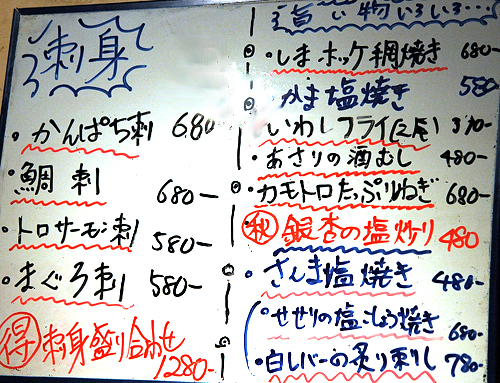 刺身
・かんぱち刺 680
・鯛刺 680-
・トロサーモン刺 580-
・まぐろ刺 580-
得 刺身盛り合わせ 1280-
旨い物いろいろ…
・しまホッケ網焼き 680-
かま塩焼き 580-
いわしフライ(2尾) 370-
・あさりの酒むし 480-
カモトロたっぷりねぎ 680-
秋 銀杏の塩炒り 480
・さんま塩焼き 480-
・せせりの塩こしょう焼き 680-
・白レバーの炙り刺し 780-